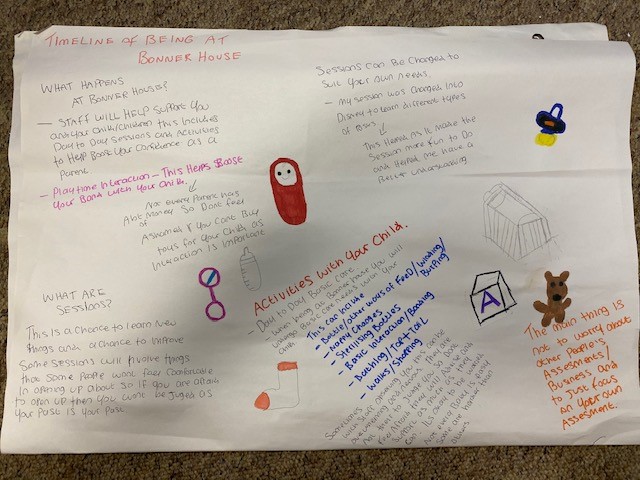 TIMELINE OF BEING AT
BONNER HOUSE
WHAT HAPPENS
AT BONNER HOUSE?
— STAFF WILL HELP SUPPORT YOU
and your child/children this includes
Day to Day Sessions and Activities
to Help Boost Your Confidence as a
Parent
- Playtime Interaction - This Helps Boose
Your Bond with Your Child.
Not every Parent has
Alot of Money So Dont feel
Ashamed if you Cant Buy
toys for your Child as
Interaction is Important
WHAT ARE
SESSIONS?
This is a Chance to learn New
things and a chance to improve
Some Sessions will involve things
that Some People wont feel Comfortable
in opening up about So if you are afraid
to open up then you wont be Juged as
Your Past is Your Past
Sessions can Be Changed to
Suit Your own needs.
- my session was changed into
Disney to learn different types
of
This Helped As it made the
Session more fun to Do
and Helped me have a
Better understanding
Activities with Your Child.
Day to Day Basic Care
when being at Bonner house you will
Basic Care needs with your
Child
This can include
- Bottle/other ways of Feed/winding/
Burping
- Nappy Changes
- Sterilising Bottles
- Basic interaction/Bonding
- Bathing/Top+Tail
- Walks/Shopping
Sometimes
with Staff
The main thing is
not to worry about
other People's
Assesments/
Business and
to Just focus
on your own
Assesment.
A